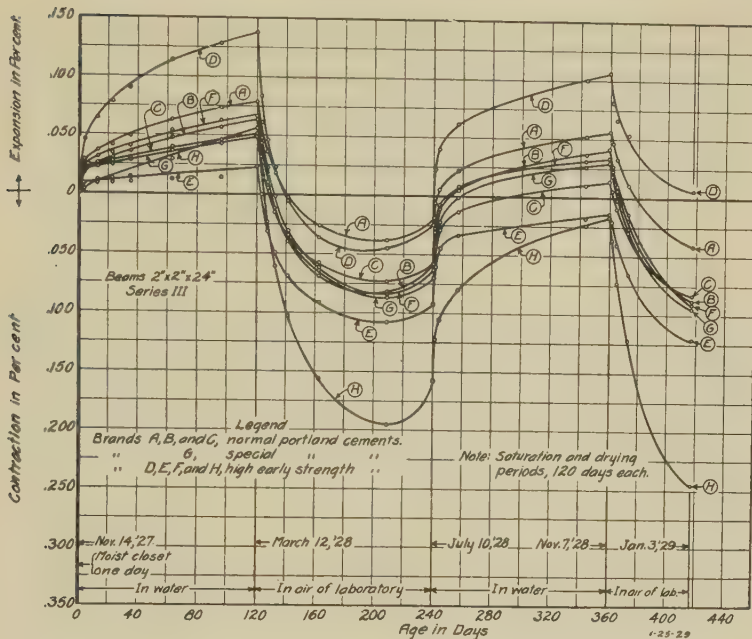 Expansion in Per cent
Contraction in Per cent
.150
.100
.050
0
.050
.100
.150
.200
.250
.300
.350
D
C
B
F
A
G
H
E
A
D
C
B
G
F
E
H
D
A
B
F
G
C
E
H
D
A
C
B
F
G
E
H
Beams 2"x2"x24"
Series III
Legend
Brands A, B, and C, normal portland cements.
" G, special " "
" D, E, F, and H, high early strength "
Note: Saturation and drying
periods, 120 days each.
Nov. 14,'27
March 12,'28
July 10,'28
Nov. 7,'28
Jan. 3,'29
Moist closet
one day
In water
In air of laboratory
In water
In air of lab.
0 40 80 120 160 200 240 280 320 360 400 440
Age in Days
1-25-29